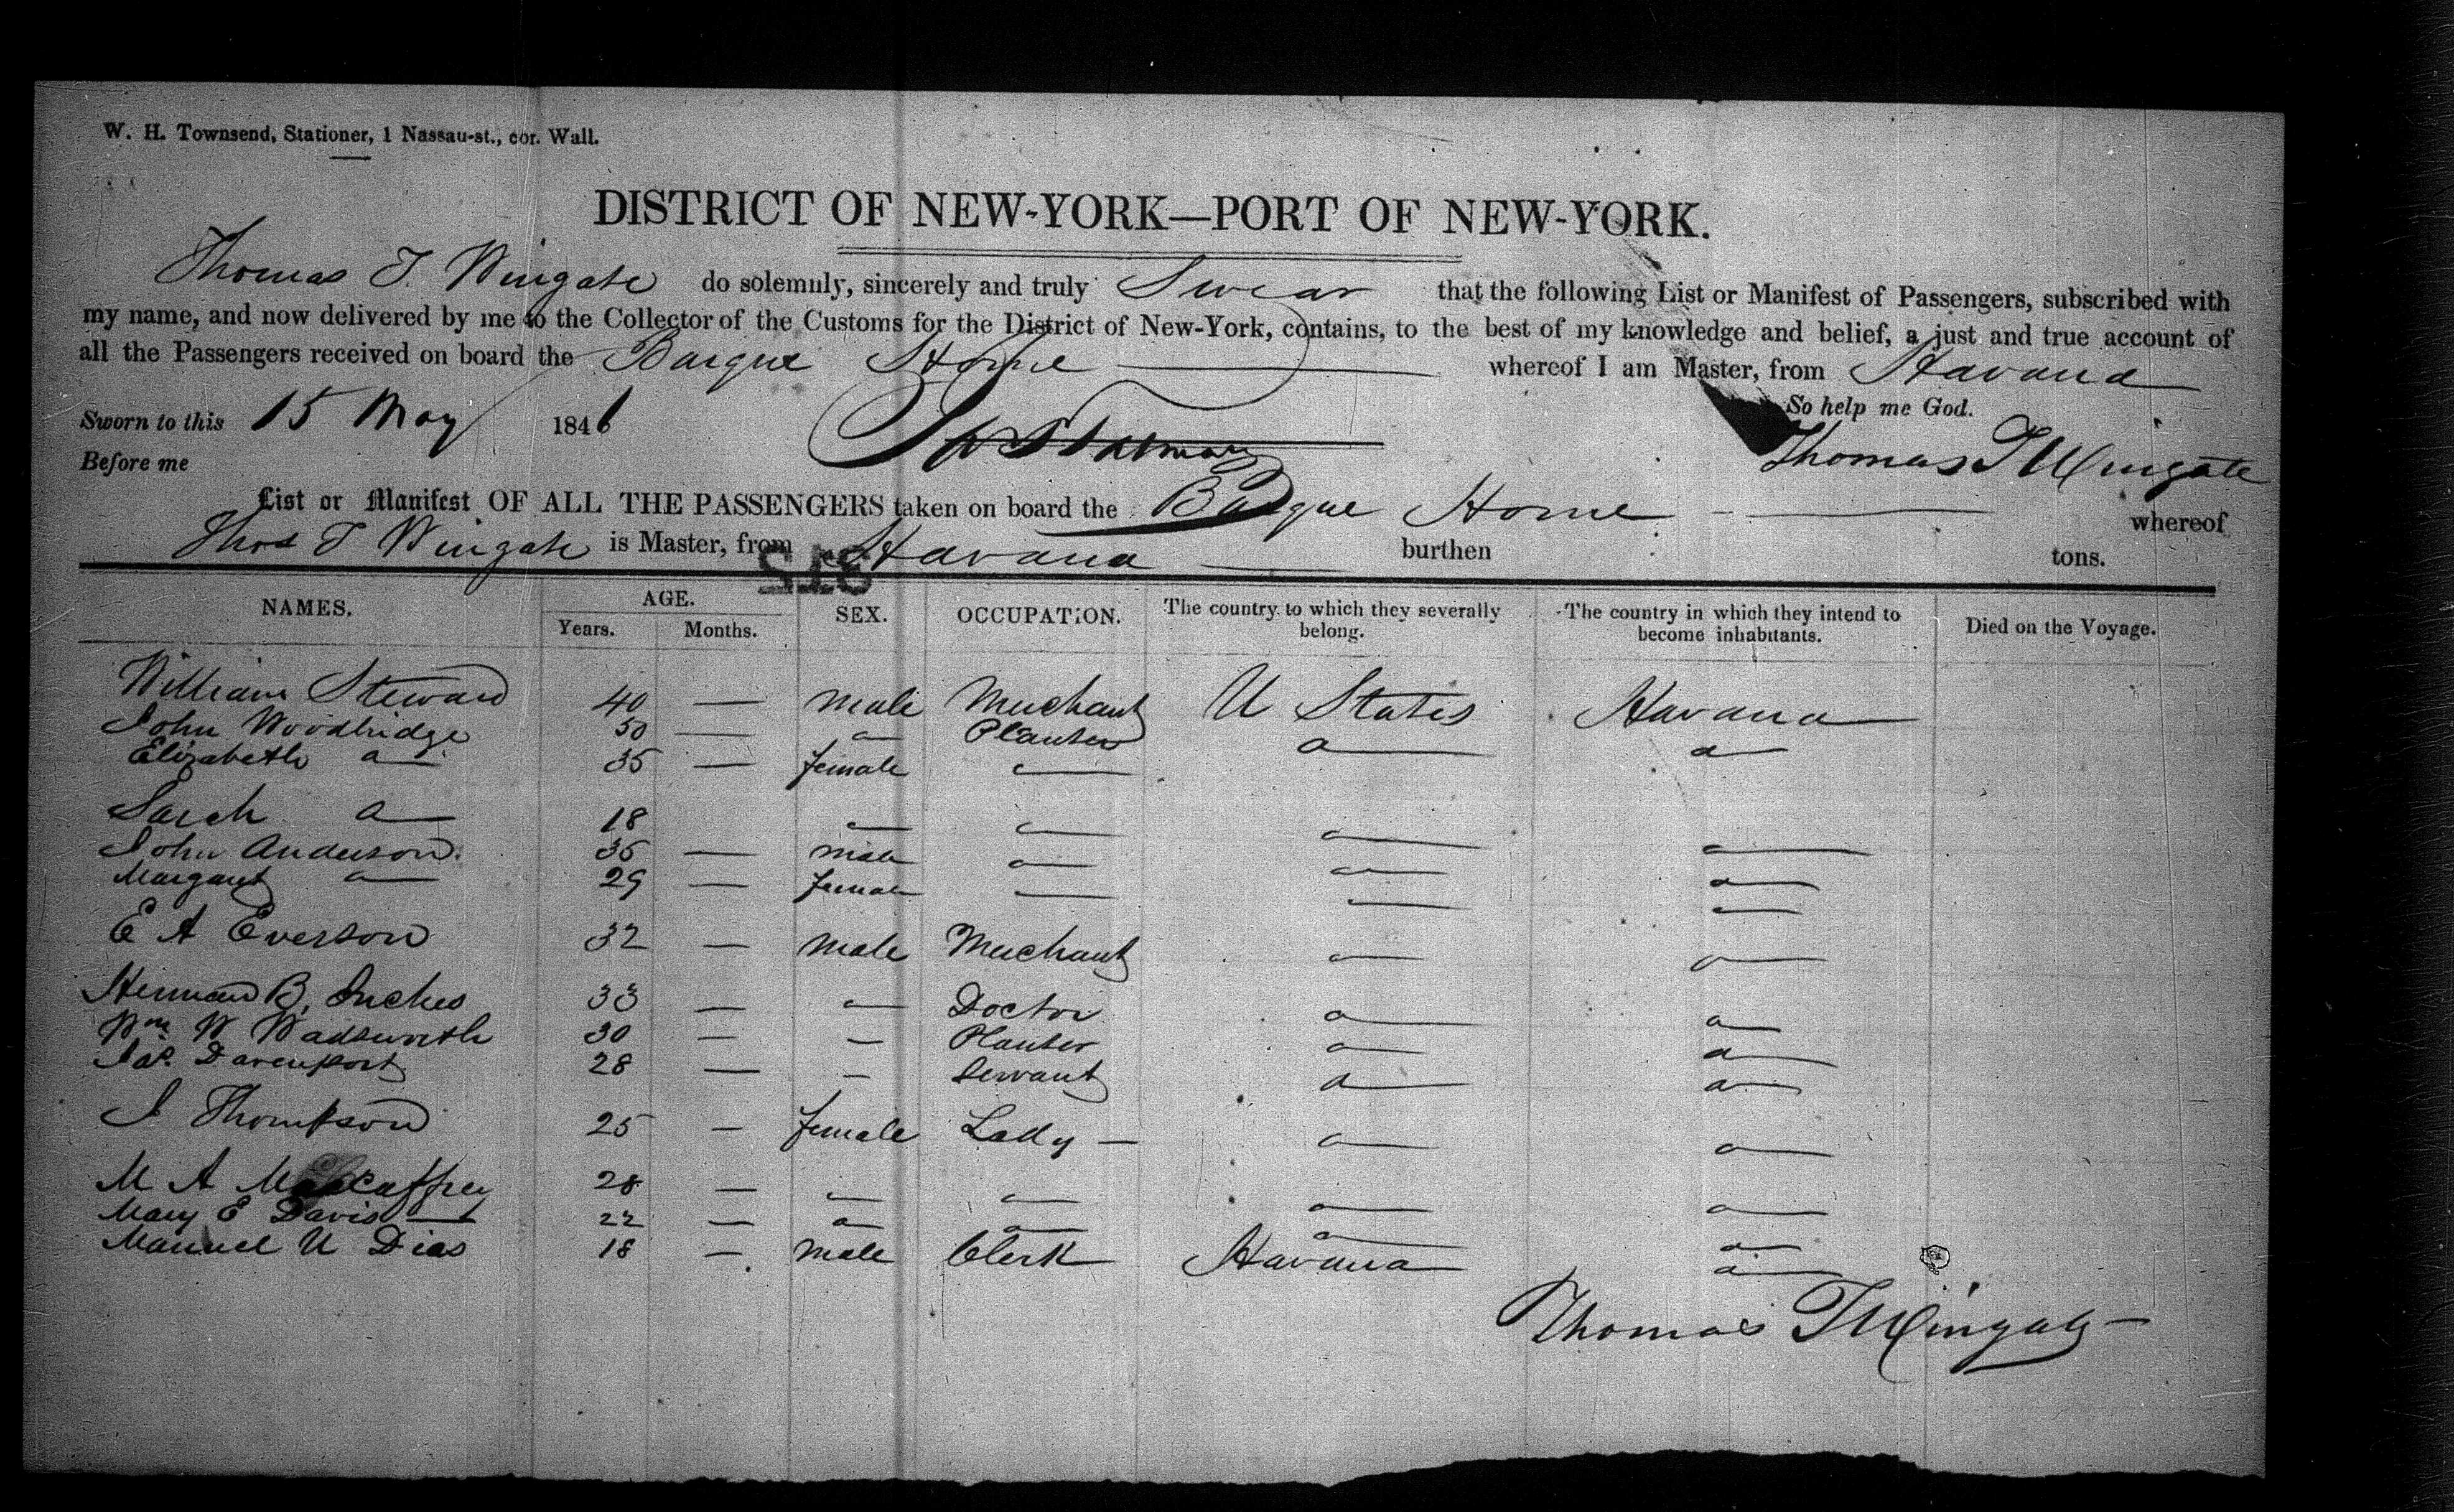 W. H. Townsend, Stationer, 1 Nassau-st., cor. Wall.
DISTRICT OF NEW-YORK—PORT OF NEW-YORK.
Thomas T. Wingate do solemnly, sincerely and truly Swear that the following List or Manifest of Passengers, subscribed with
my name, and now delivered by me to the Collector of the Customs for the District of New-York, contains, to the best of my knowledge and belief, a just and true account of
all the Passengers received on board the Barque Home whereof I am Master, from Havana
So help me God.
Sworn to this 15 May 1846
Thomas T Wingate
Before me
List or Manifest OF ALL THE PASSENGERS taken on board the Barque Home whereof
Thos T Wingate is Master, from Havana burthen tons.
312
NAMES. AGE. Years. Months. SEX. OCCUPATION. The country to which they severally belong. The country in which they intend to become inhabitants. Died on the Voyage.
William Steward 40 — male Merchant U States Havana
John Woodbridge 50 — " Planter " "
Elizabeth " 35 — female "
Sarah " 18 " " " "
John Anderson. 35 — male " " "
Margaret " 29 — female " " "
E A Everson 32 — male Merchant " "
Herman B. Inches 33 — " Doctor " "
Wm W Wadsworth 30 — " Planter " "
Jas. Davenport 28 — " Servant " "
J Thompson 25 — female Lady — " "
M A Maccaffrey 28 — " " " "
Mary E Davis 22 — " " " "
Manuel U Dias 18 — male Clerk Havana "
Thomas T Wingate